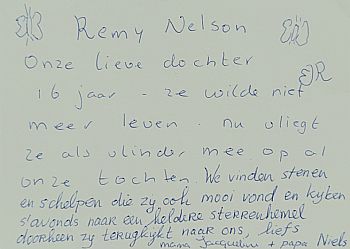 Remy Nelson
Onze lieve dochter
16 jaar - ze wilde niet
meer leven - nu vliegt
ze als vlinder mee op al
onze tochten. We vinden stenen
en schelpen die zij ook mooi vond en kijken
s'avonds naar een heldere sterrenhemel
doorheen zij terugkijkt naar ons, liefs
mama Jacqueline + papa Niels